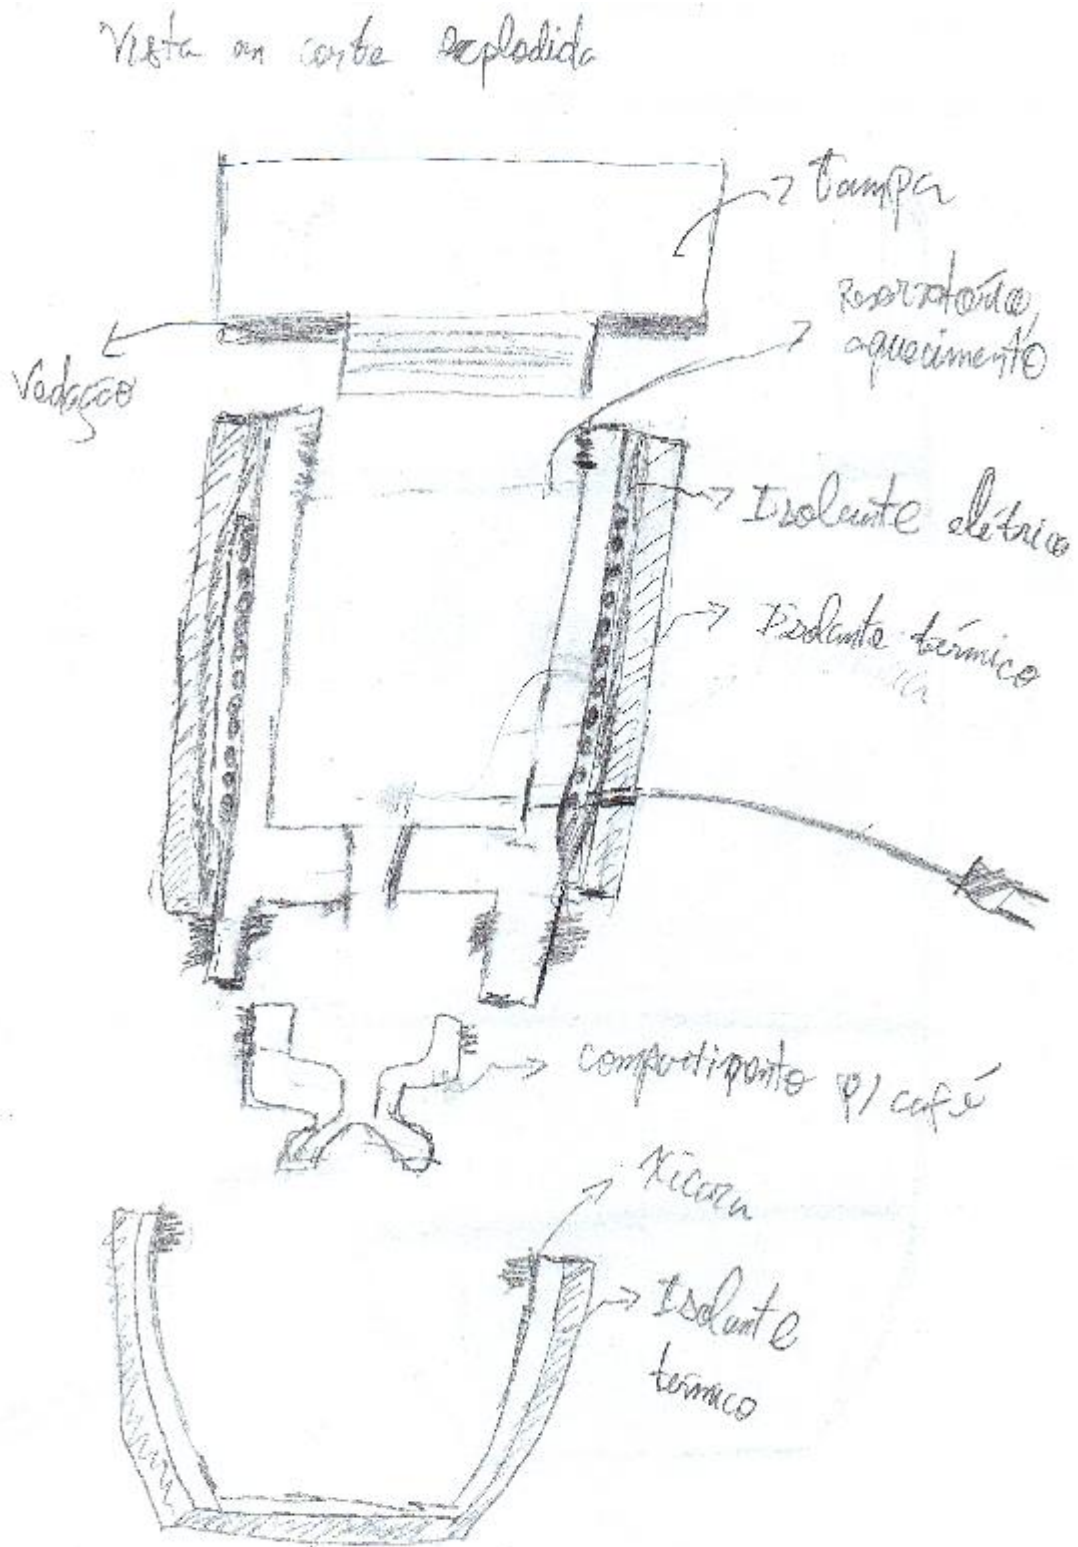 Vista em corte explodida
tampa
Reservatório,
aquecimento
Vedação
Isolante elétrico
Isolante térmico
compartimento p/ café
Xícara
Isolante
térmico